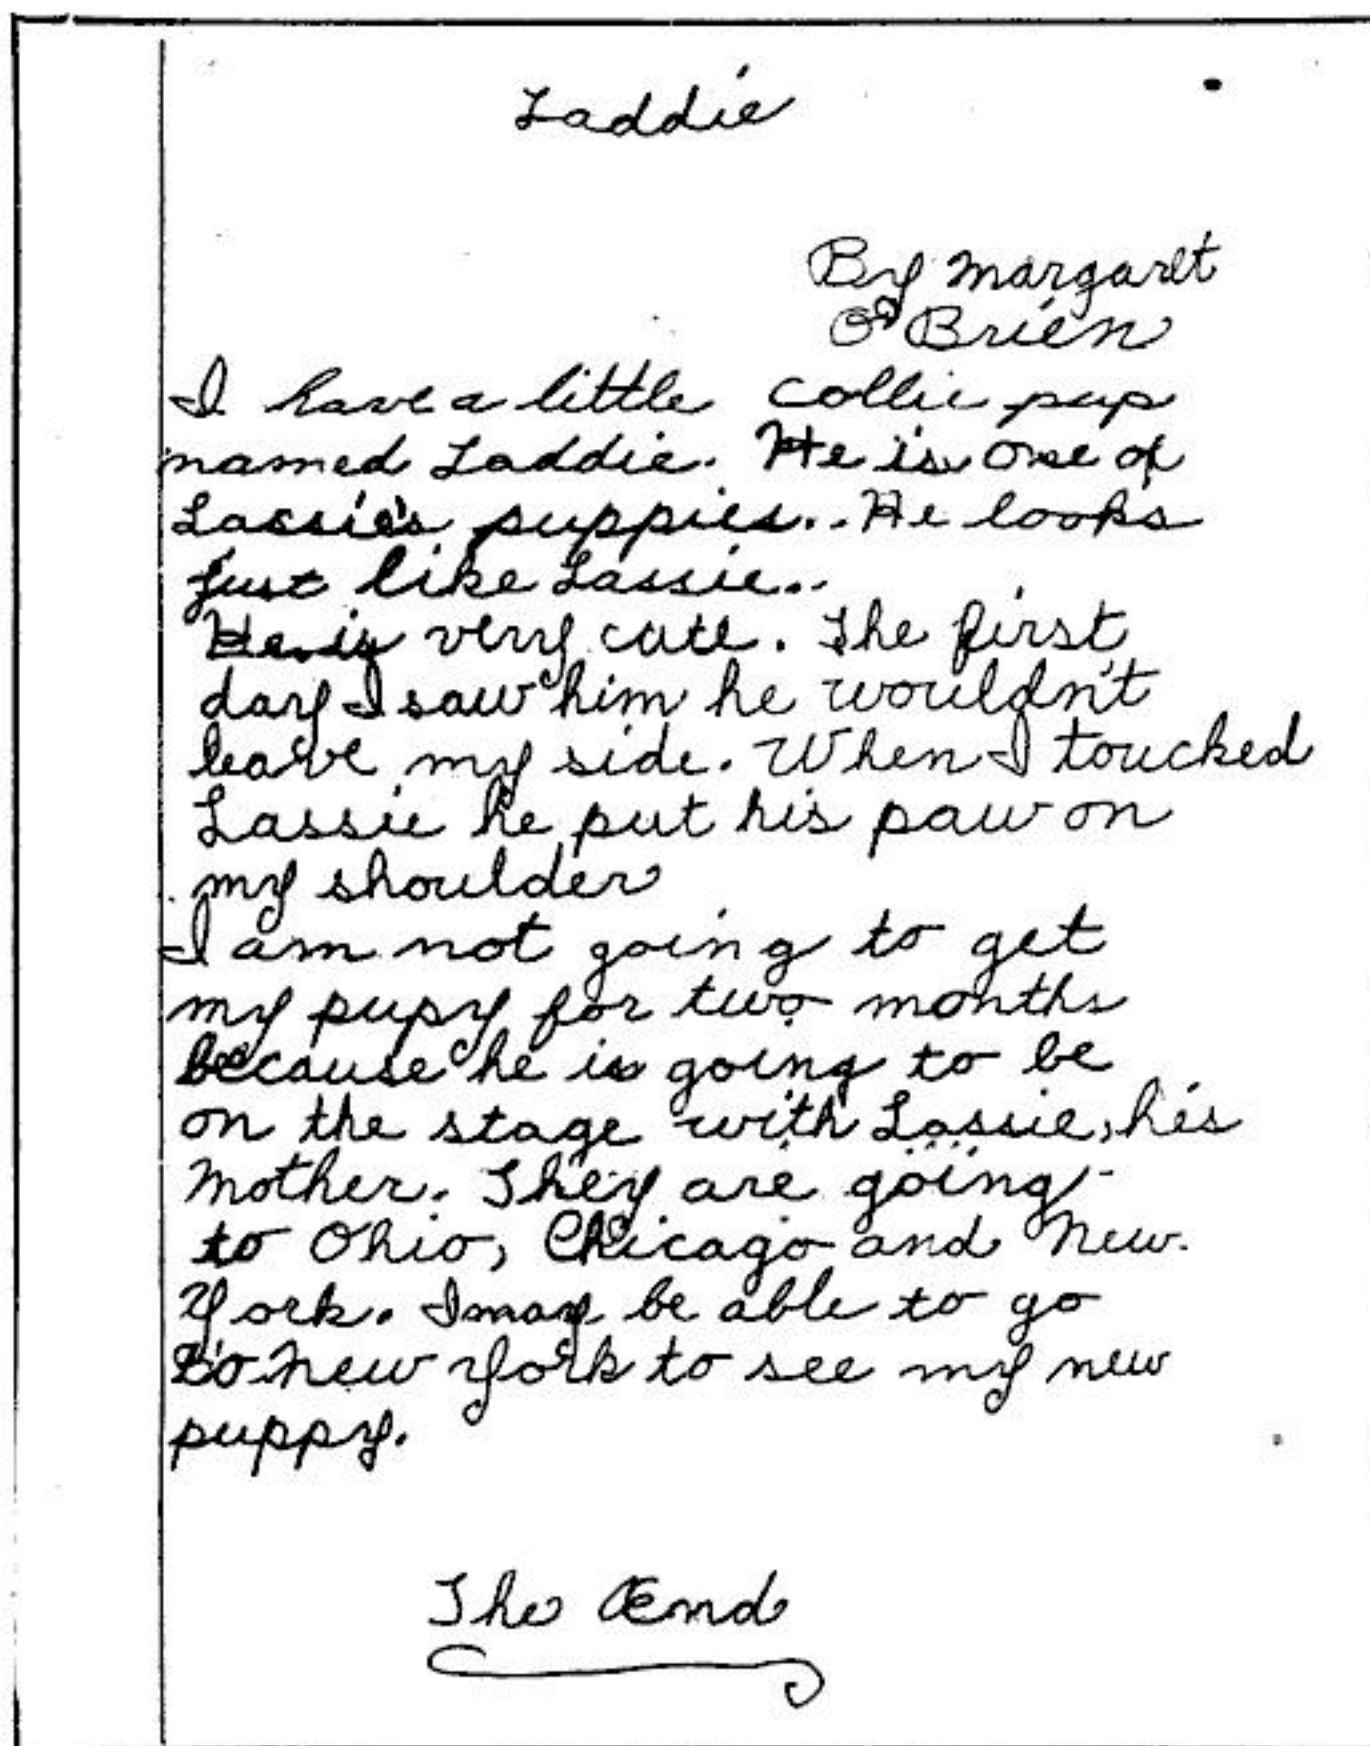 Laddie
By Margaret
O'Brien
I have a little collie pup
named Laddie. He is one of
Lassie's puppies.. He looks
just like Lassie..
He is very cute. The first
day I saw him he wouldn't
leave my side. When I toucked
Lassie he put his paw on
my shoulder
I am not going to get
my pupy for two months
because he is going to be
on the stage with Lassie, his
Mother. They are going
to Ohio, Chicago and New
York. I may be able to go
to New York to see my new
puppy.
The End